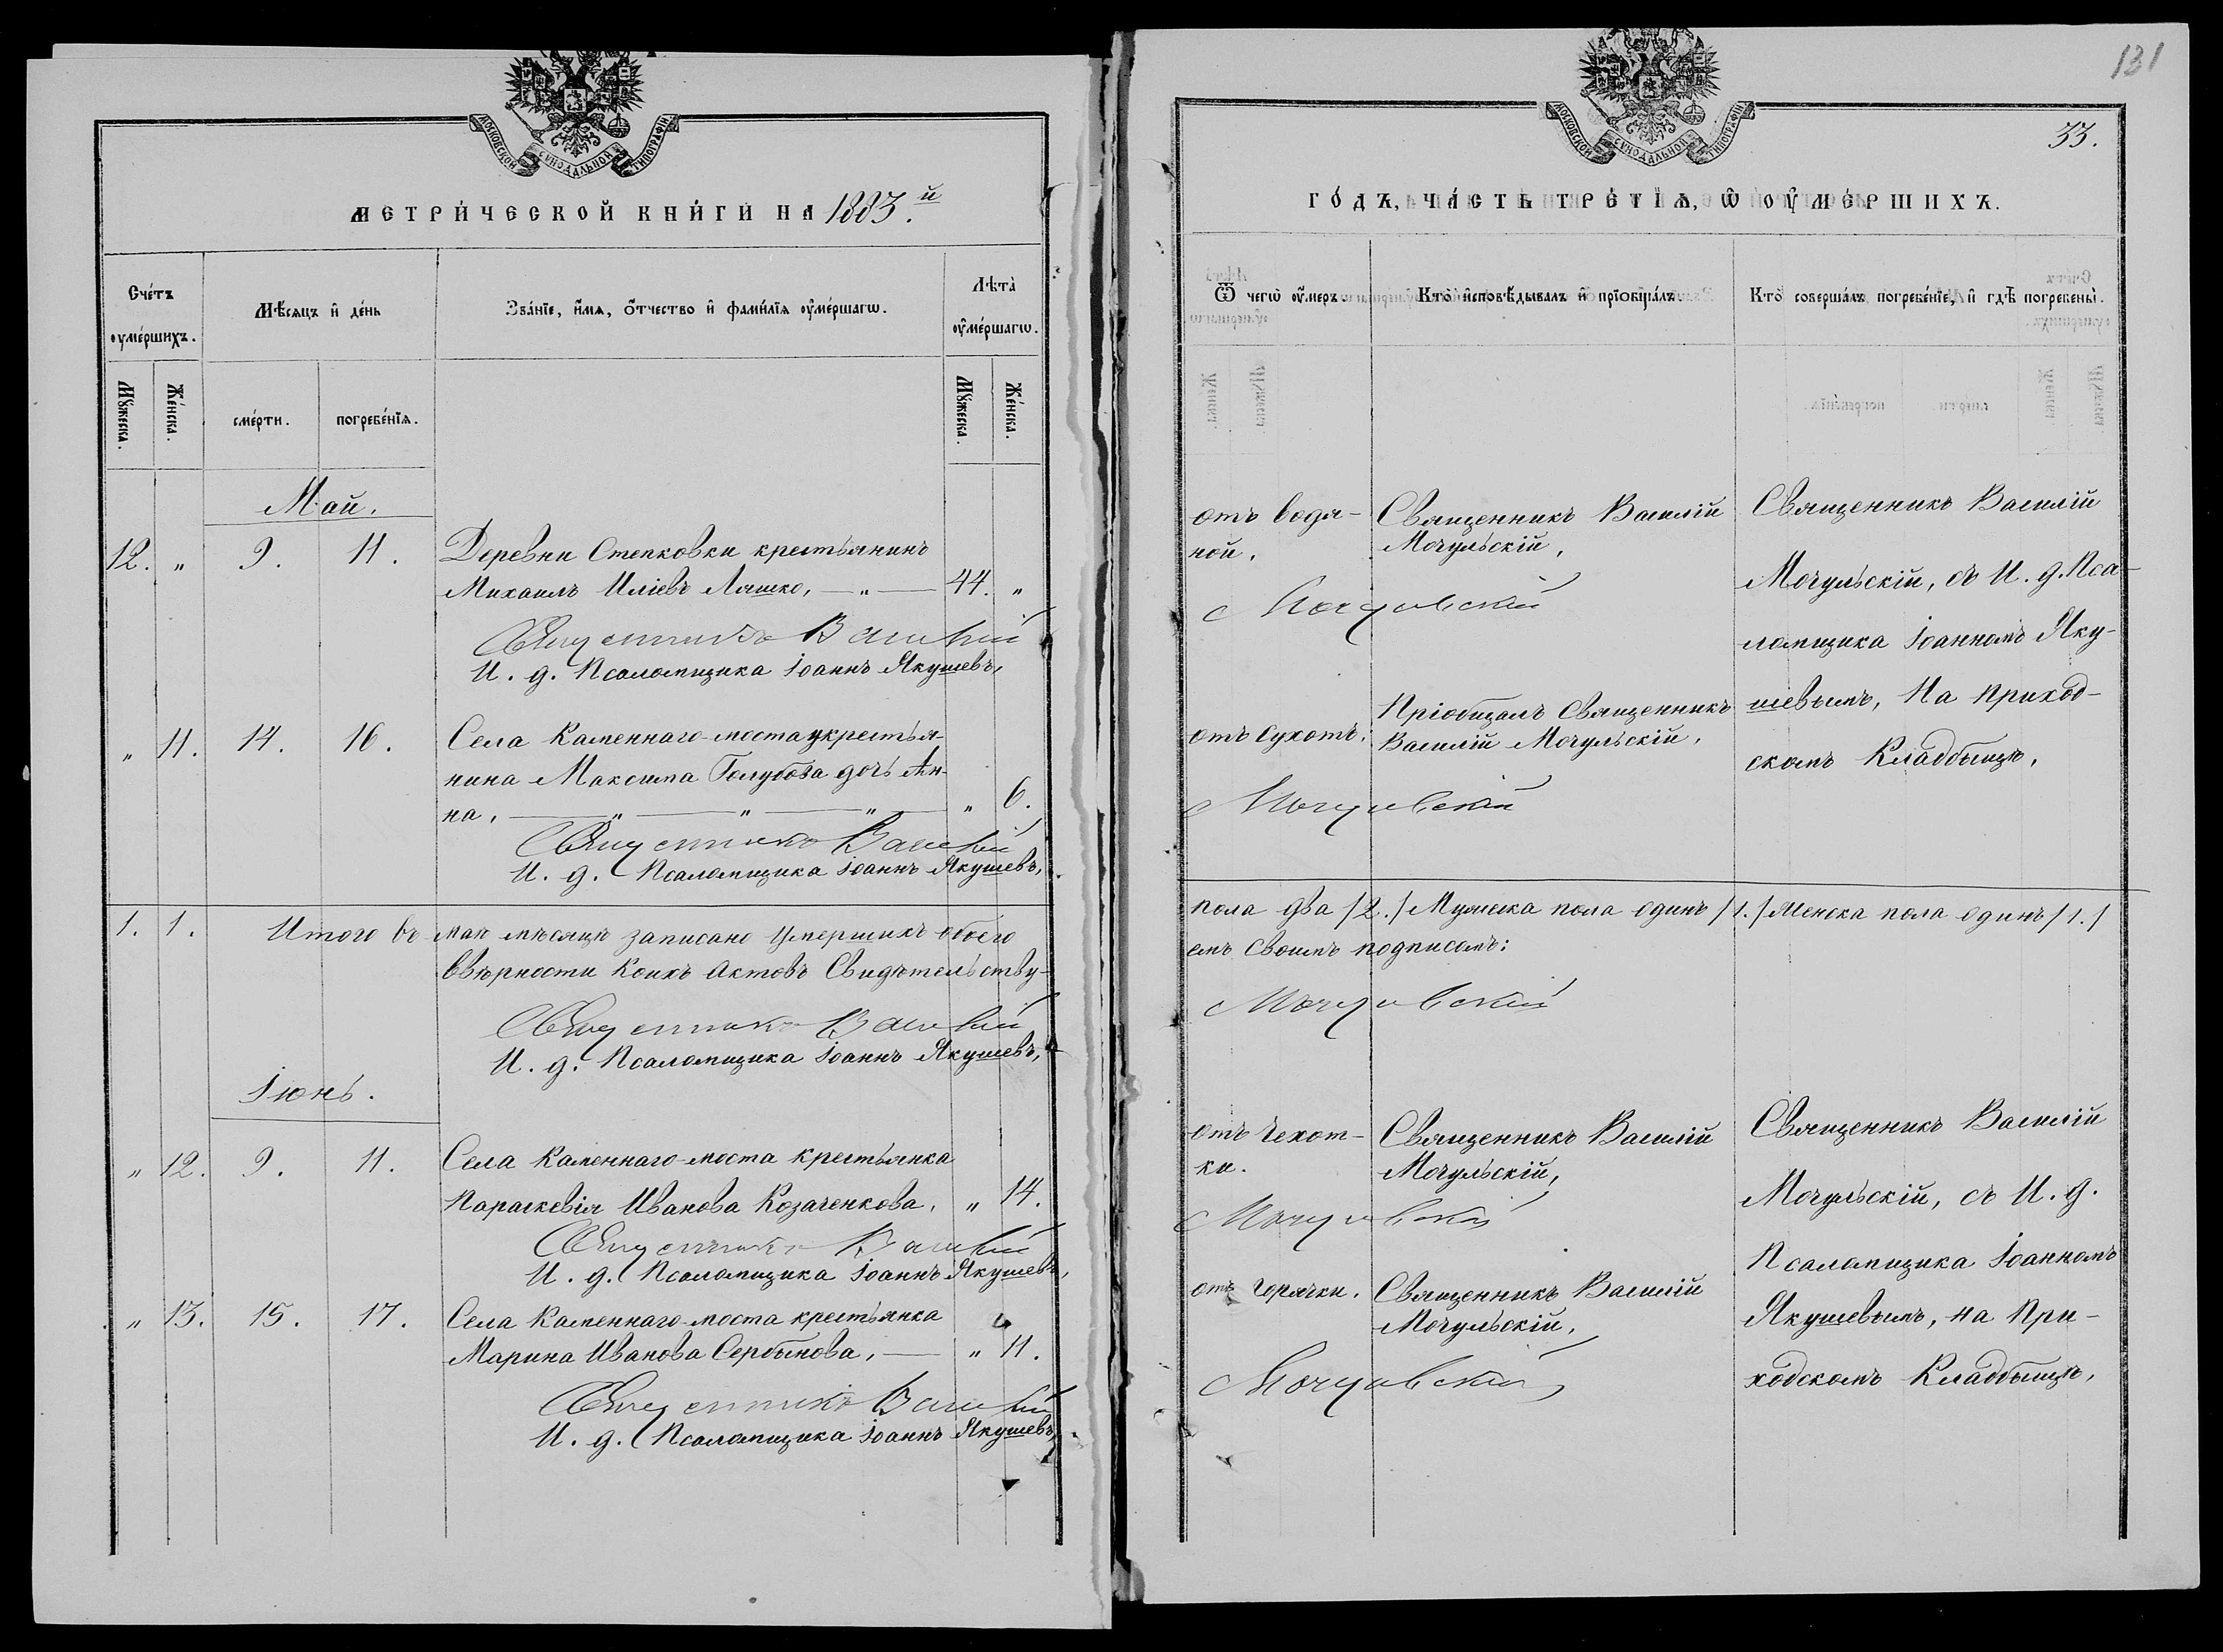 131
33.
МОСКОВСКОЙ СѴНОДАЛЬНОЙ ТИПОГРАФІИ
МЕТРИ́ЧЕСКОЙ КНИ́ГИ НА 1883.й
Сче́тъ оумє́ршихъ.
Мѣ́сяцъ и де́нь
Зва́нїе, и́мѧ, о́тчество и фами́лїѧ оуме́ршагѡ.
Лѣта̀ оуме́ршагѡ.
Мꙋ́жеска.
Же́нска.
сме́рти.
погребе́нїѧ.
Мꙋ́жеска.
Же́нска.
Май.
12. „ 9. 11. Деревни Степковки крестьянинъ
Михаилъ Иліевъ Ляшко, — „ — 44. „
Священникъ Василій
И. д. Псаломщика Іоаннъ Якушевъ,
„ 11. 14. 16. Села Каменнаго-моста крестья-
нина Максима Голубова дочь Ан-
на, — „ — „ — „ — „ 6.
Священникъ Василій
И. д. Псаломщика Іоаннъ Якушевъ,
1. 1. Итого въ маѣ мѣсяцѣ записано умершихъ обоего
ввѣрности коихъ актовъ Свидѣтельству-
Священникъ Василій
И. д. Псаломщика Іоаннъ Якушевъ,
Іюнь.
„ 12. 9. 11. Села Каменнаго-моста крестьянка
Параскевія Иванова Козаченкова, „ 14.
Священникъ Василій
И. д. Псаломщика Іоаннъ Якушевъ,
„ 13. 15. 17. Села Каменнаго-моста крестьянка
Марина Иванова Сербинова, — „ 11.
Священникъ Василій
И. д. Псаломщика Іоаннъ Якушевъ,
МОСКОВСКОЙ СѴНОДАЛЬНОЙ ТИПОГРАФІИ
ГО́ДЪ, ЧА́СТЬ ТРЕ́ТЇѦ, Ѡ ОУМЕ́РШИХЪ.
Ѿ чегѡ̀ оу́меръ.
Кто̀ исповѣ́дывалъ и прїобща́лъ.
Кто̀ соверша́лъ погребе́нїе, и гдѣ̀ погребены̀.
отъ водя-
ной.
Священникъ Василій
Мочульскій,
Мочульскій
Священникъ Василій
Мочульскій, съ И. д. Пса-
ломщика Іоанномъ Яку-
шевымъ, На приход-
скомъ Кладбищѣ,
отъ сухотъ.
Пріобщалъ Священникъ
Василій Мочульскій,
Мочульскій
пола два /2./ Мужеска пола одинъ /1./ Женска пола одинъ /1./
емъ своимъ подписомъ:
Мочульскій
отъ чехот-
ки.
Священникъ Василій
Мочульскій,
Мочульскій
Священникъ Василій
Мочульскій, съ И. д.
Псаломщика Іоанномъ
Якушевымъ, на При-
ходскомъ Кладбищѣ,
отъ горячки.
Священникъ Василій
Мочульскій,
Мочульскій